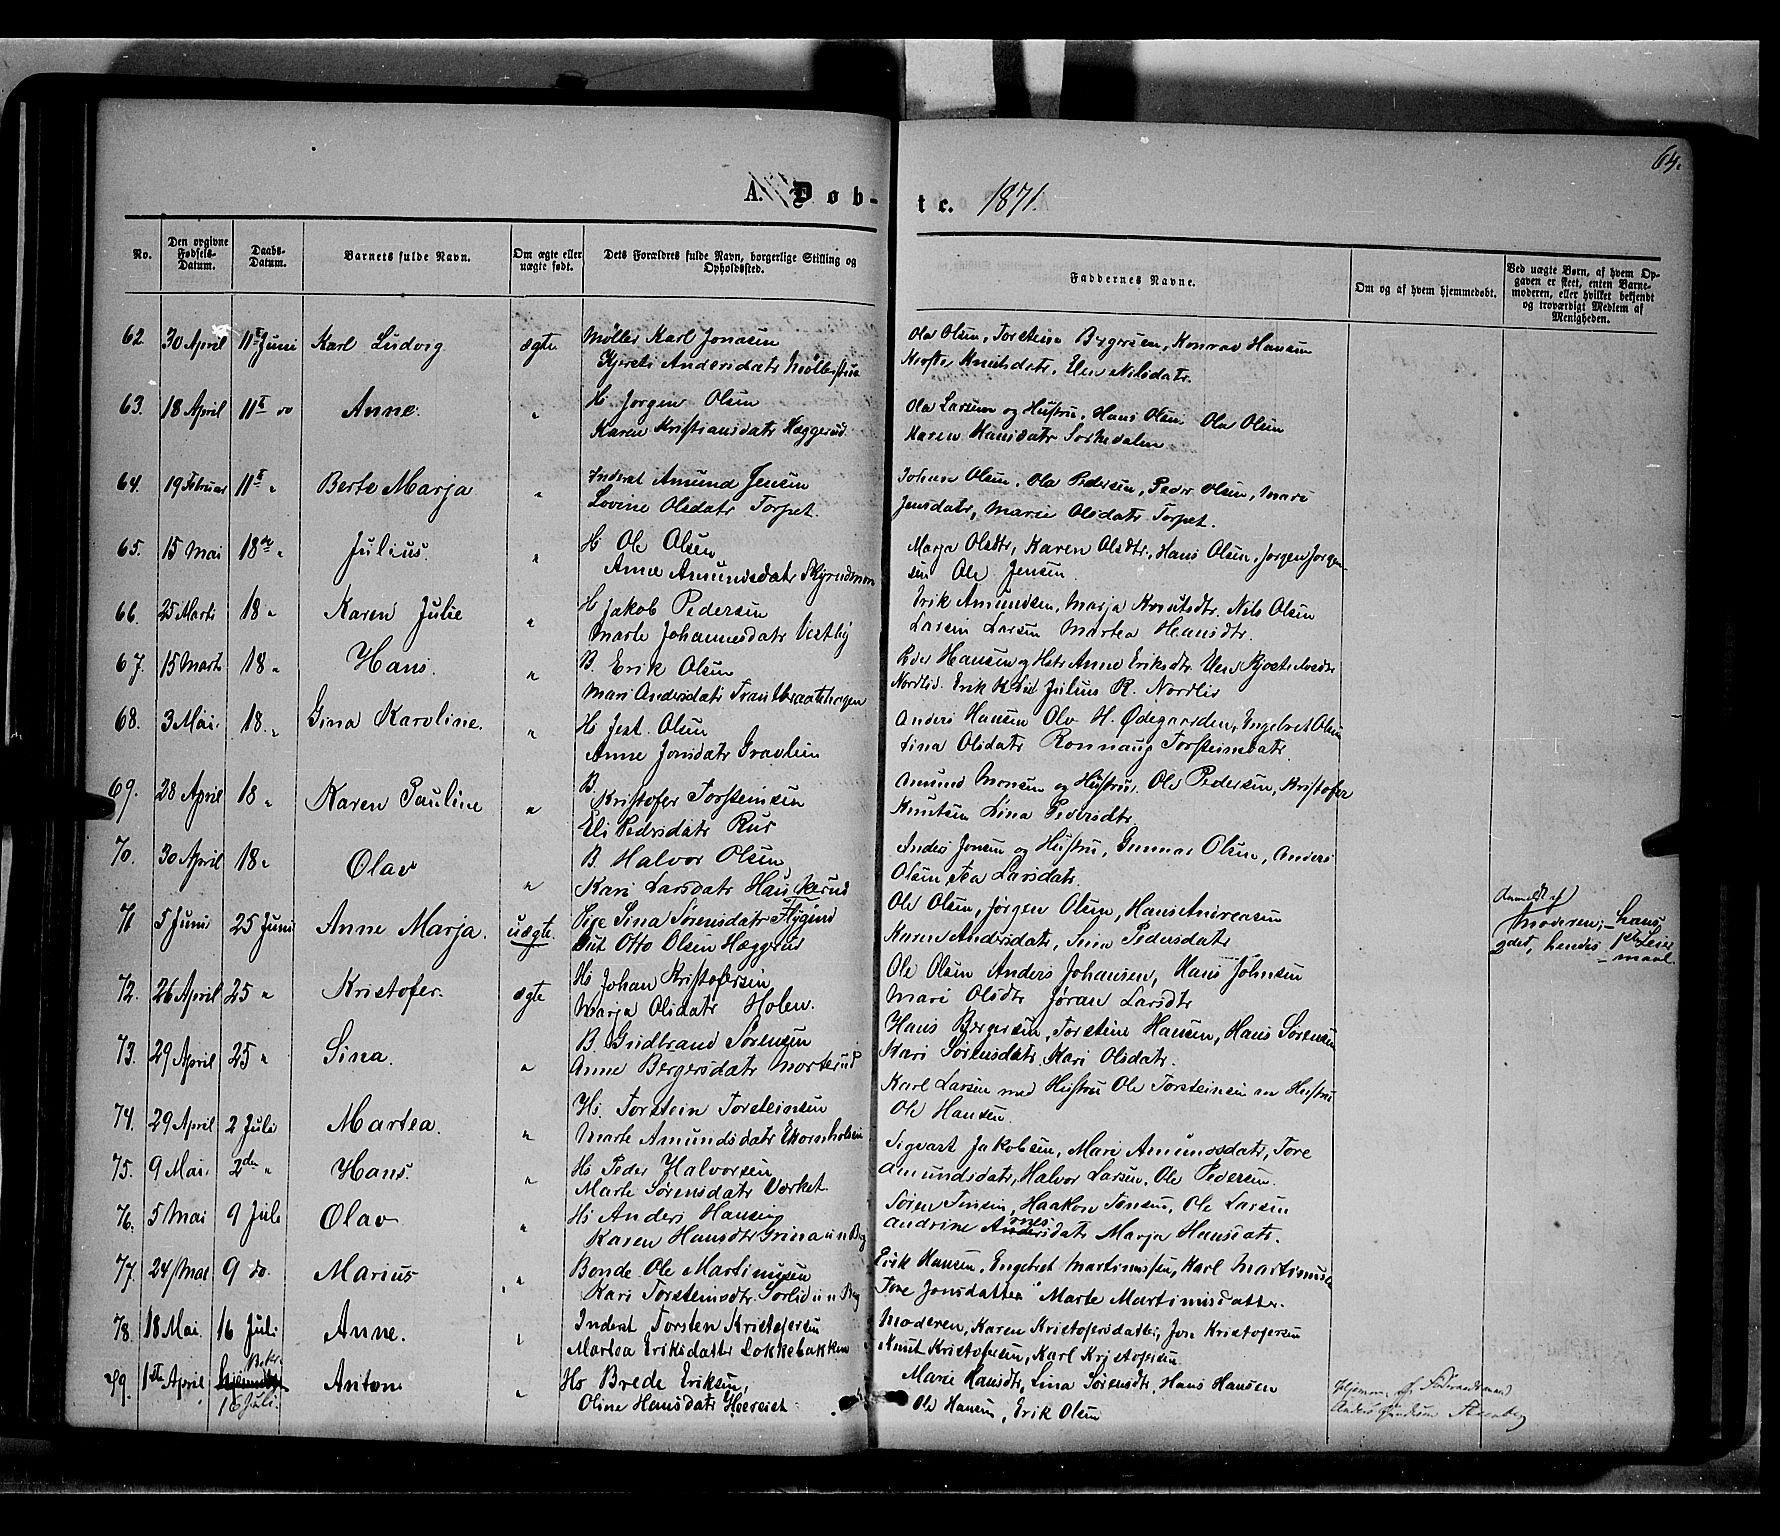 64.
A. Døb-
te. 1871.
No.
Den opgivne Fødsels-Datum.
Daabs-Datum.
Barnets fulde Navn.
Om ægte eller uægte født.
Dets Forældres fulde Navn, borgerlige Stilling og Opholdssted.
Faddernes Navne.
Om og af hvem hjemmedøbt.
Ved uægte Børn, af hvem Opgaven er skeet, enten Barnemoderen, eller hvilket bekjendt og troværdigt Medlem af Menigheden.
62. 30 April 11te Juni Karl Ludvig ægte Møller Karl Jonasen Ole Olsen, Torstein Bergersen, Konrad Hansen
Kjersti Andersdatr Møllerstua Knutsdatr, Nilsdatr.
63. 18 April 11te do Anne. " H Jørgen Olsen Ole Larsen og Hustru, Hans Olsen Ole Olsen
Karen Kristiansdatr Hæggerud Karen Hansdatr Sørkedalen
64. 19 Februar 11te " Berte Marja " Inderst Amund Jensen Johan Olsen, Ole Pedersen, Peder Olsen, Mari
Lovine Olsdatr Torpet. Jensdatr, Marie Olsdatr Torpet.
65. 15 Mai 18de " Julius. " H Ole Olsen Marja Olsdtr, Karen Olsdtr, Hans Olsen, Jørgen Jørgen-
Anne Amundsdatr sen Ole Jensen
66. 25 Marts 18 " Karen Julie " H Jakob Pedersen Erik Amundsen, Marja Knutsdtr. Nils Olsen
Marte Johannesdatr Vestby Larsen Martea Hansdtr.
67. 15 Marts 18 " Hans. " B. Erik Olsen Peder Hansen og Hstr Anne Eriksdtr
Mari Andersdatr Nordlid. Erik Julius R. Nordlid
68. 3 Mai. 18. " Gina Karoline. " H Jest. Olsen Anders Hansen Ole H. Ødegaarden, Engebret Olsen
Anne Jonsdatr Gravlien Lina Olsdatr Ronnaug Torsteinsdatr
69. 28 April 18 " Karen Pauline " B. Kristofer Torsteinsen Amund Monsen og Hustru. Ole Pedersen, Kristofer
Eli Pedrsdatr Rud Knutsen Lina Pedersdtr
70. 30 April 18 " Olav " B. Halvor Olsen Anders Jensen og Hustru, Gunnar Olsen, Anders
Kari Larsdatr Haukerud Olsen, Larsdatr.
71 5 Juni 25 Juni Anne Marja. uægte Pige Sina Sørensdatr Flygind Ole Olsen, Jørgen Olsen, Hans Andreasen
Gut Otto Olsen Hæggerud Karen Andersdatr, Sina Pedersdatr
Anmeldt af Moderen; - hans
2det, hendes 1ste Leier-
maal.
72. 26 April 25 " Kristofer. ægte H Johan Kristofersen Ole Olsen Anders Johansen, Hans Johnsen
Marja Olsdatr Holen. Mari Olsdtr Jøran Larsdtr
73. 29 April 25 " Sina. " B. Gudbrand Sørensen Hans Bergersen, Torstine Hansen, Hans Sørensen
Anne Bergersdatr Morterud Kari Sørensdatr, Kari Olsdatr.
74. 29 April 2 Juli Martea. " H. Torstein Torsteinsen Karl Larsen med Hustru Ole Torsteinsen m Hustru
Marte Amundsdatr Ekornholsen Ole Hansen
75. 9 Mai. 2den " Hans. " H Peder Halvorsen Sigvart Jakobsen, Mari Amundsdatr, Tore
Marte Sørensdatr Værket. Amundsdatr, Halvor Larsen, Ole Pedersen.
76. 5 Mai 9 Juli Olav " H. Anders Hansen Søren Jensen, Haakon Jensen, Ole Larsen
Karen Hansdtr Andrine Marja Hansdatr.
77. 24/Mai 9 do. Marius " Bonde Ole Martinusen Erik Hansen, Engebret Martinusen, Karl Martinusen
Kari Torsteinsdtr Tore Jonsdatter Marte Martinusdatter.
78. 18 Mai. 16 Juli Anne. " Inderst Torsten Kristofersen Moderen, Karen Kristofersdatter, Jon Kristofersen
Martea Eriksdatter Løkkebakken Knut Kristofersen, Karl Kristofersen
79. 1ste April 16 Juli. Anton " H Brede Eriksen, Marie Hansdtr, Lina Sørensdtr, Hans Hansen
Oline Hansdatr Ole Hansen, Erik Olsen
Hjemme af
Anders